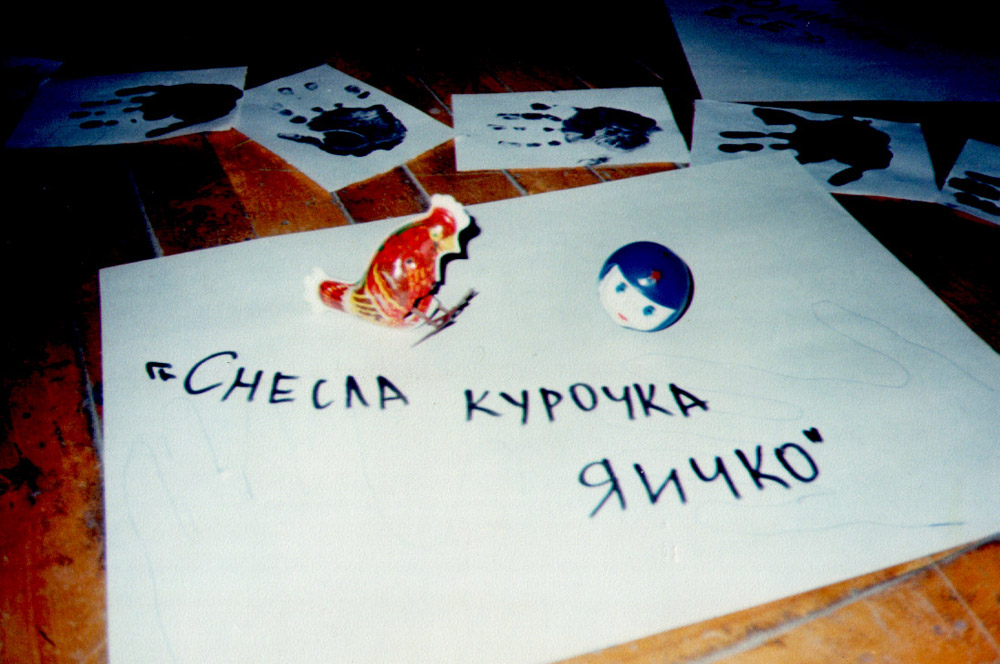 "Снесла курочка
яичко"